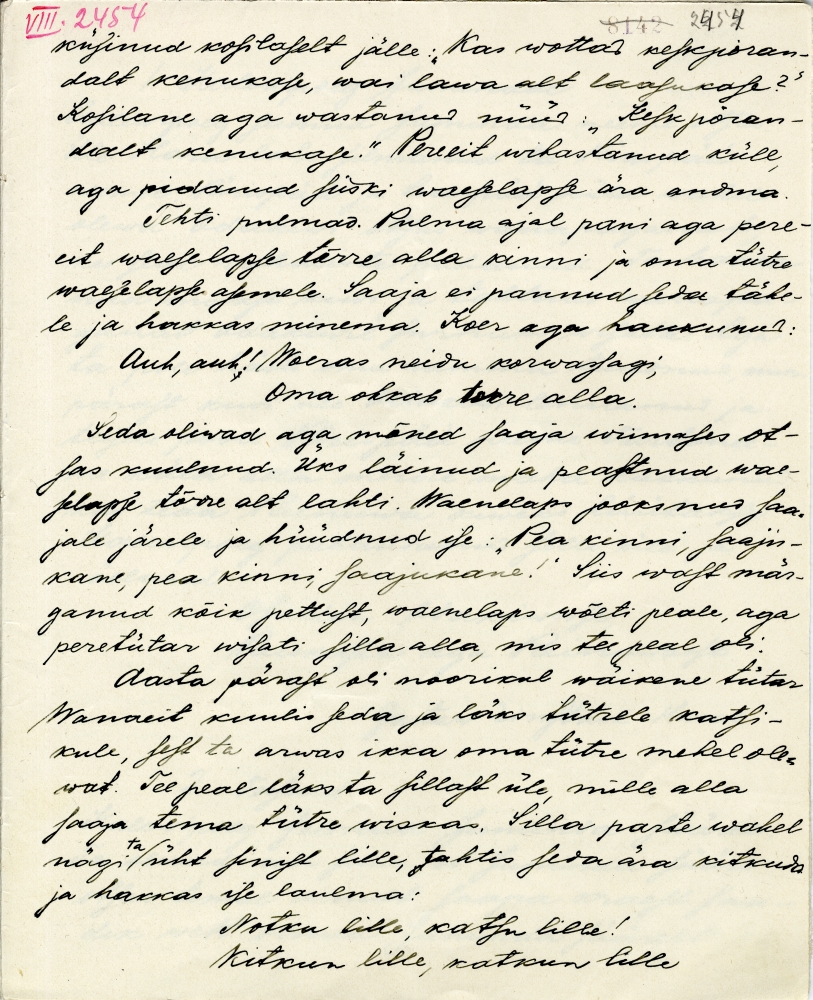 VIII. 2454 8142 2454
küsinud kosilaselt jälle: „Kas wottad keskpõran-
dalt kenukase, wai lawa alt laasukase?“
Kosilane aga wastanud nüüd: „Keskpõran-
dalt kenukase.“ Pereeit wihastanud küll,
aga pidanud siiski waeselapse ära andma.
Tehti pulmad. Pulma ajal pani aga pere-
eit waeselapse tõrre alla kinni ja oma tütre
waeselapse asemele. Saaja ei pannud seda tähe-
le ja hakkas minema. Koer aga haukunud:
Auh, auh! Woeras neidu korwassagi,
Oma ohkab tõrre alla.
Seda oliwad aga mõned saaja wiimases ot-
sas kuulnud. Üks läinud ja peastnud wae-
selapse tõrre alt lahti. Waenelaps jooksnud saa-
jale järele ja hüüdnud ise: „Pea kinni, saaju-
kane, pea kinni, saajukane!“ Siis wast mär-
ganud kõik pettust, waenelaps wõeti peale, aga
peretütar wisati silla alla, mis tee peal oli.
Aasta pärast oli noorikul wäikene tütar
Wanaeit kuulis seda ja läks tütrele katsi-
kule, sest ta arwas ikka oma tütre mehel ole-
wat. Tee peal läks ta sillast üle, mille alla
saaja tema tütre wiskas. Silla parte wahel
nägi ta üht sinist lille, tahtis seda ära kitkuda
ja hakkas ise laulma:
Notku lille, katsu lille!
Kitkun lille, katkun lille